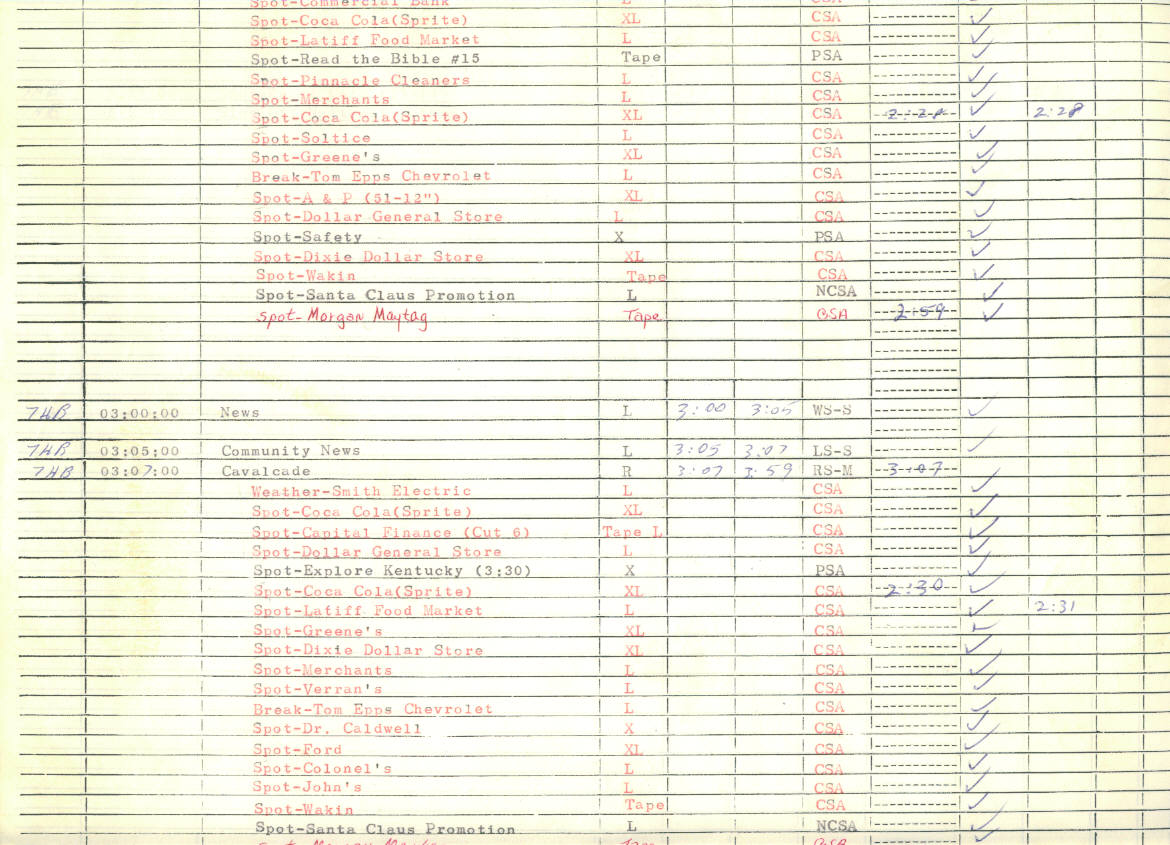 Spot-Commercial Bank L CSA
Spot-Coca Cola(Sprite) XL CSA ✓
Spot-Latiff Food Market L CSA ✓
Spot-Read the Bible #15 Tape PSA ✓
Spot-Pinnacle Cleaners L CSA ✓
Spot-Merchants L CSA ✓
Spot-Coca Cola(Sprite) XL CSA 2:28 ✓ 2:28
Spot-Soltice L CSA ✓
Spot-Greene's XL CSA ✓
Break-Tom Epps Chevrolet L CSA ✓
Spot-A & P (51-12") XL CSA ✓
Spot-Dollar General Store L CSA ✓
Spot-Safety X PSA ✓
Spot-Dixie Dollar Store XL CSA ✓
Spot-Wakin Tape CSA ✓
Spot-Santa Claus Promotion L NCSA ✓
Spot-Morgan Maytag Tape CSA 2:59 ✓
THB 03:00:00 News L 3:00 3:05 WS-S ✓
THB 03:05:00 Community News L 3:05 3:07 LS-S ✓
THB 03:07:00 Cavalcade R 3:07 3:59 RS-M 3:07
Weather-Smith Electric L CSA ✓
Spot-Coca Cola(Sprite) XL CSA ✓
Spot-Capital Finance (Cut 6) Tape L CSA ✓
Spot-Dollar General Store L CSA ✓
Spot-Explore Kentucky (3:30) X PSA ✓
Spot-Coca Cola(Sprite) XL CSA 2:30 ✓
Spot-Latiff Food Market L CSA ✓ 2:31
Spot-Greene's XL CSA ✓
Spot-Dixie Dollar Store XL CSA ✓
Spot-Merchants L CSA ✓
Spot-Verran's L CSA ✓
Break-Tom Epps Chevrolet L CSA ✓
Spot-Dr. Caldwell X CSA ✓
Spot-Ford XL CSA ✓
Spot-Colonel's L CSA ✓
Spot-John's L CSA ✓
Spot-Wakin Tape CSA ✓
Spot-Santa Claus Promotion L NCSA ✓